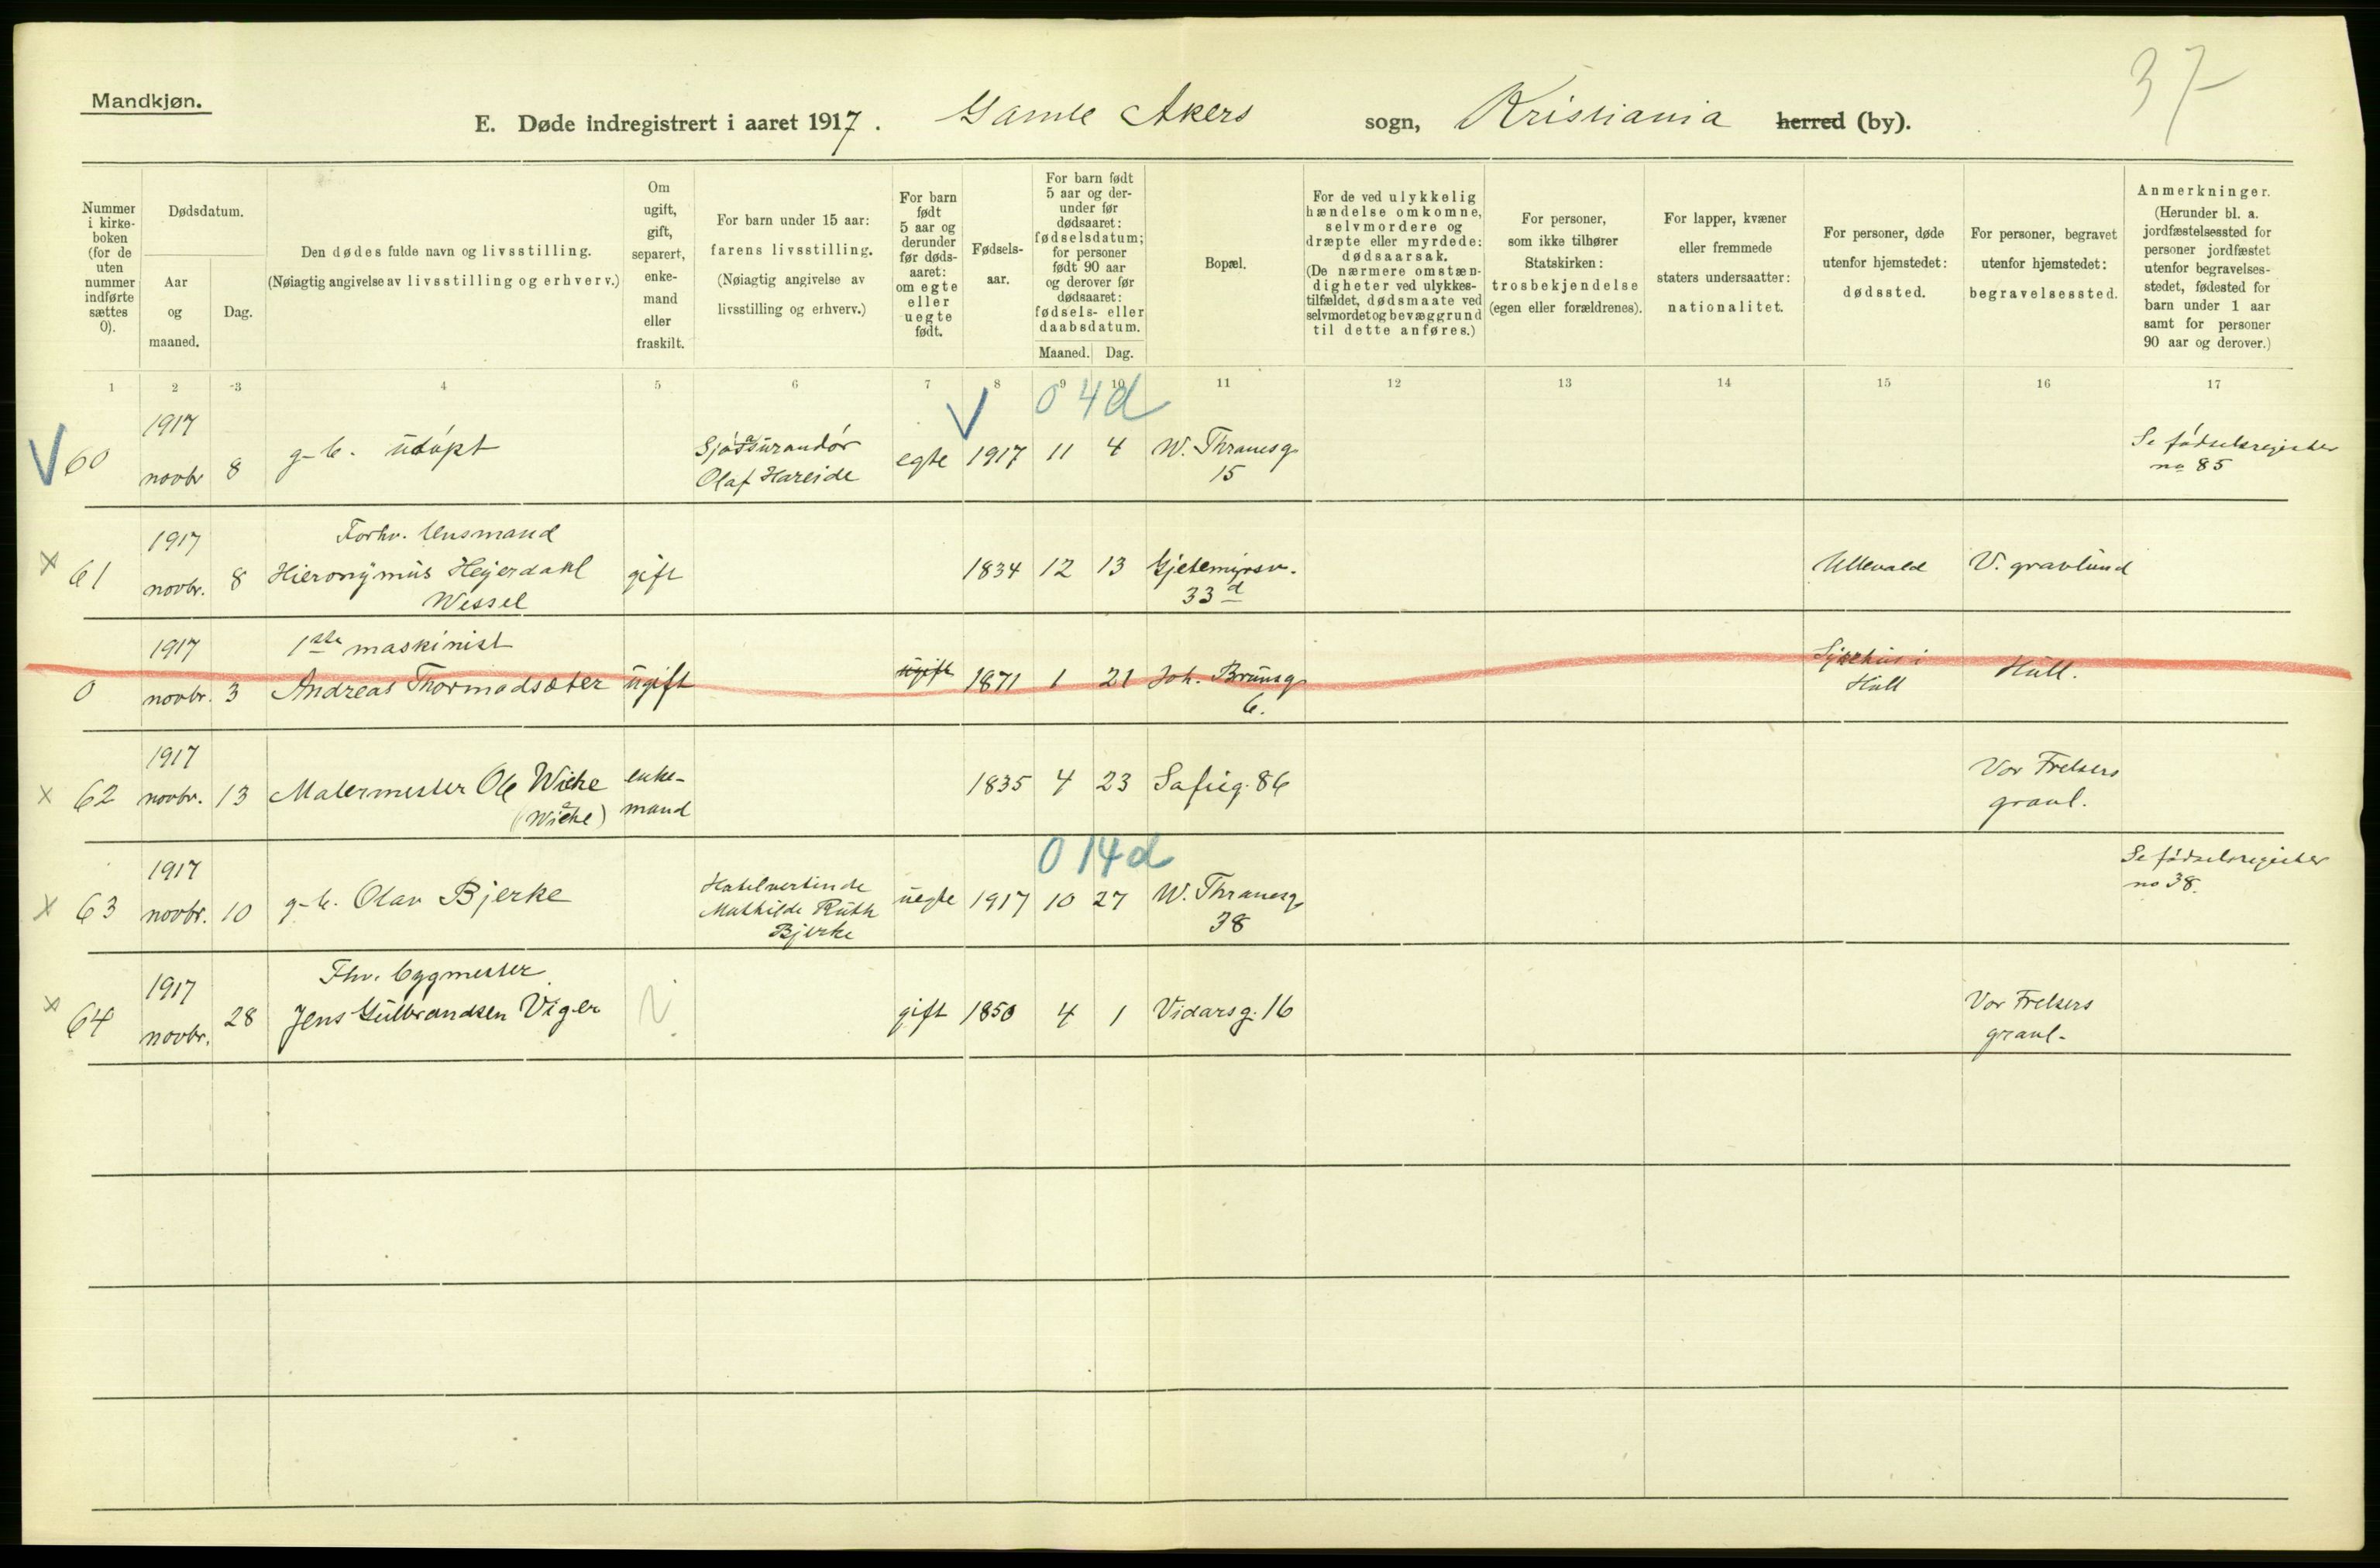 37
Mandkjøn.
E. Døde indregistrert i aaret 1917. Gamle Akers sogn, Kristiania herred (by).
Nummer i kirke-boken (for de uten nummer indførte sættes 0).
Dødsdatum.
Aar og maaned.
Dag.
Den dødes fulde navn og livsstilling.
(Nøiagtig angivelse av livsstilling og erhverv.)
Om ugift, gift, separert, enke-mand eller fraskilt.
For barn under 15 aar: farens livsstilling.
(Nøiagtig angivelse av livsstilling og erhverv.)
For barn født 5 aar og derunder før døds-aaret: om egte eller uegte født.
Fødsels-aar.
For barn født 5 aar og der-under før dødsaaret: fødselsdatum; for personer født 90 aar og derover før dødsaaret: fødsels- eller daabsdatum.
Maaned. Dag.
Bopæl.
For de ved ulykkelig hændelse omkomne, selvmordere og dræpte eller myrdede: dødsaarsak.
(De nærmere omstæn-digheter ved ulykkes-tilfældet, dødsmaate ved selvmordet og bevæggrund til dette anføres.)
For personer, som ikke tilhører Statskirken: trosbekjendelse (egen eller forældrenes).
For lapper, kvæner eller fremmede staters undersaatter: nationalitet.
For personer, døde utenfor hjemstedet: dødssted.
For personer, begravet utenfor hjemstedet: begravelsessted.
Anmerkninger.
(Herunder bl. a. jordfæstelsessted for personer jordfæstet utenfor begravelses-stedet, fødested for barn under 1 aar samt for personer 90 aar og derover.)
1 2 3 4 5 6 7 8 9 10 11 12 13 14 15 16 17
V 0 4d
V 60 1917 novbr 8 g-b. udøpt Olaf Hareide egte 1917 11 4 W. Thranesg 15 Se fødselsregister no 85
x 61 1917 novbr. 8 Forhv. lensmand
Hieronymus Heyerdahl Wessel gift 1834 12 13 Gjetemyrsv. 33 d Ullevaal V. gravlund
0 1917 novbr. 3 1ste maskinist
Andreas Thormodsæter ugift ugift 1871 1 21 Joh. Brunsg 6. Sykehus i Hull Hull.
x 62 1917 novbr. 13 Malermester Ole Wiche (Wiche) enke-mand 1835 4 23 Sofieg. 86 Vor Frelsers gravl.
0 14d
x 63 1917 novbr. 10 g-b. Olav Bjerke Hotelvertinde Mathilde Ruth Bjerke uegte 1917 10 27 W. Thranesg 38 Se fødselsregister no 38.
x 64 1917 novbr. 28 Fhv. bygmester
Jens Gulbrandsen Viger gift 1850 4 1 Vidarsg. 16 Vor Frelsers gravl.